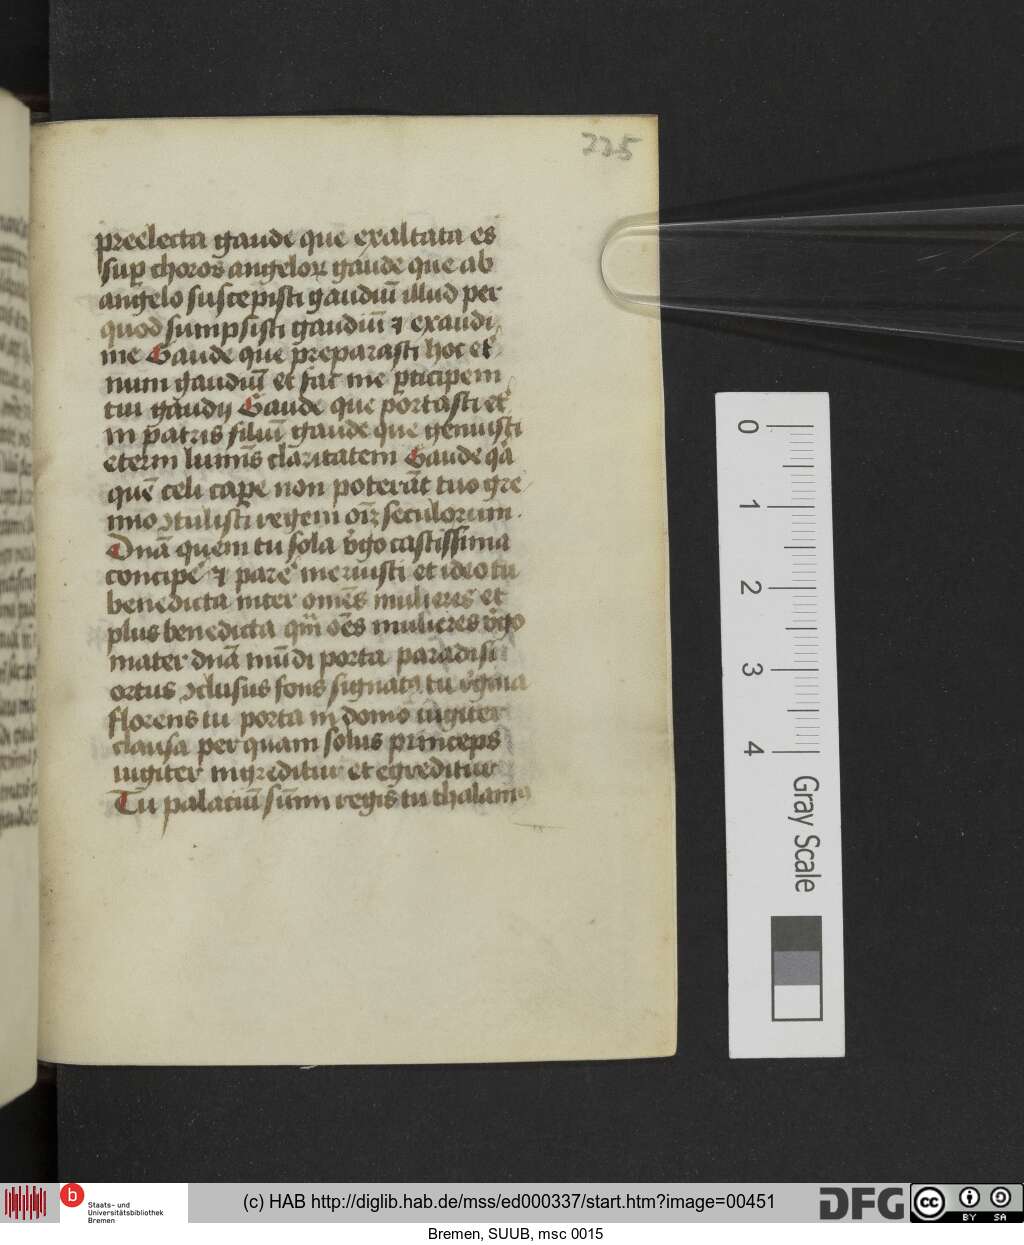 225
preelecta gaude que exaltata es
sup choros angeloꝝ gaude que ab
angelo suscepisti gaudiū illud per
quod sumpsisti gaudiū ⁊ exaudi
me Gaude que preparasti hoc et
num gaudiū et fac me ꝑticipem
tui gaudij Gaude que portasti et
ni patris filiū gaude que genuisti
eterni luminis claritatem Gaude qͣ
quē celi caꝑe non poterāt tuo gre
mio ꝯtulisti regem oīꝝ seculorum
Dnā quem tu sola v̾go castissima
concipe ⁊ pare meruisti et ideo tu
benedicta inter omēs mulieres et
plus benedicta qm̄ oēs mulieres v̾go
mater dnā mūdi porta paradisi
ortus ꝯclusus fons signatꝰ tu v̾gula
florens tu porta in domo iugiter
clausa per quam solus princeps
iugiter ingreditur et egreditur
Tu palaciū sūmi regis tu thalamꝰ
0
1
2
3
4
Gray Scale
b
Staats- und
Universitätsbibliothek
Bremen
(c) HAB http://diglib.hab.de/mss/ed000337/start.htm?image=00451
DFG
cc
BY SA
Bremen, SUUB, msc 0015